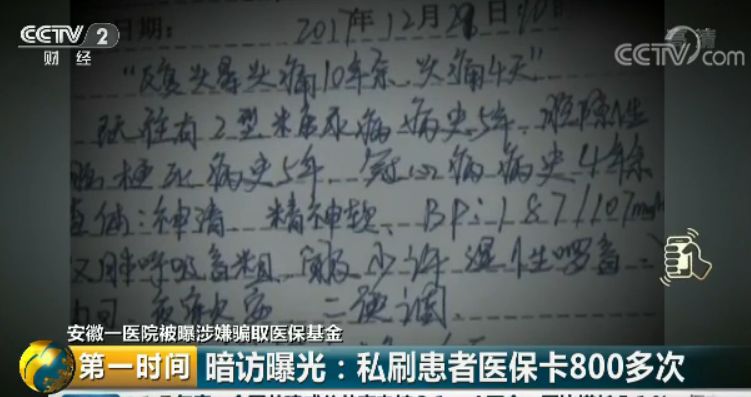 CCTV 2
财经
CCTV.com
日期: 2017年12月28日
“反复头晕头痛10年余, 头痛4天”
既往有2型糖尿病病史5年, 腔隙性
脑梗死病史5年, 冠心病病史4年余
查体: 神清, 精神软, BP: 187/107mmHg
双肺呼吸音粗, 闻及少许湿性啰音
二便调
安徽一医院被曝涉嫌骗取医保基金
第一时间
暗访曝光：私刷患者医保卡800多次